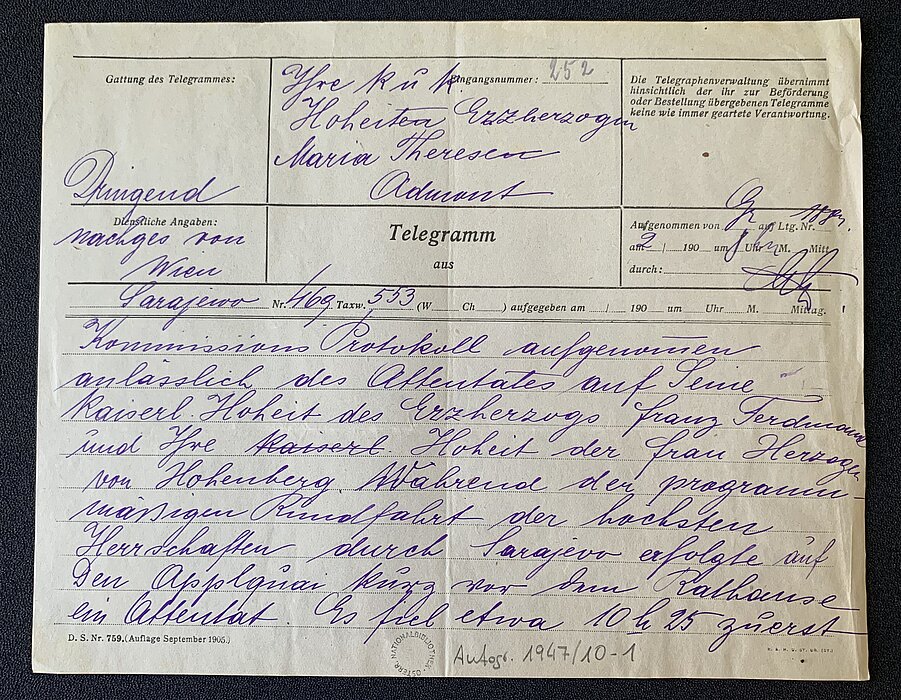 Gattung des Telegrammes:
Dringend
Ihre k u k. Eingangsnummer: 252
Hoheiten Erzherzogin
Maria Theresen
Admont
Die Telegraphenverwaltung übernimmt
hinsichtlich der ihr zur Beförderung
oder Bestellung übergebenen Telegramme
keine wie immer geartete Verantwortung.
Dienstliche Angaben:
nachges von
Wien
Telegramm
aus
Aufgenommen von Gz auf Ltg. Nr.
am 2/ 190 um Uhr M. Mitt
durch:
Sarajewo Nr. 469 Taxw. 553 (W Ch ) aufgegeben am / 190 um Uhr M. Mittag.
Kommissions Protokoll aufgenommen
anlässlich des Attentates auf Seine
Kaiserl. Hoheit des Erzherzogs Franz Ferdinand
und Ihre Kaiserl. Hoheit der Frau Herzogin
von Hohenberg. Während der programm-
mässigen Rundfahrt der höchsten
Herrschaften durch Sarajevo erfolgte auf
Den Applquai kurz vor dem Rathause
ein Attentat. Es fiel etwa 10 h 25 zuerst
D. S. Nr. 759. (Auflage September 1905.)
ÖSTERR. NATIONALBIBLIOTHEK
Autogr. 1947/10-1